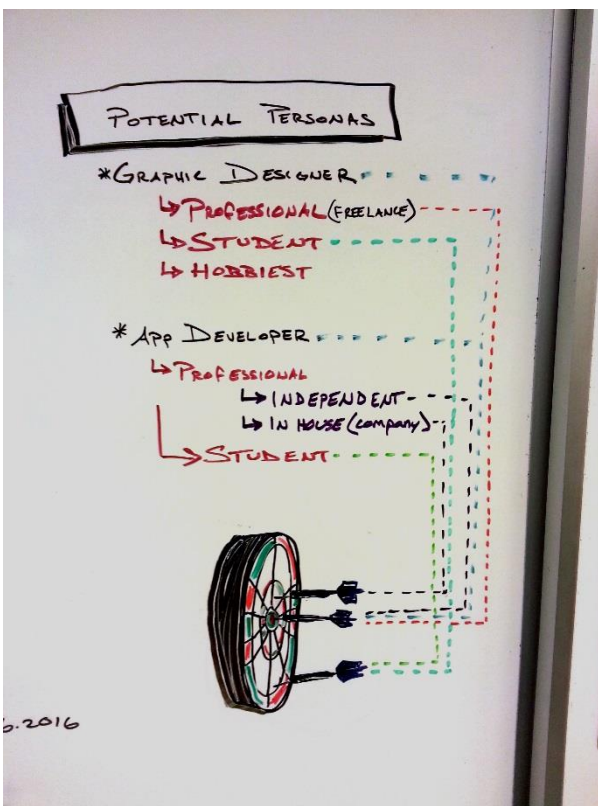 POTENTIAL PERSONAS
*GRAPHIC DESIGNER
↳ PROFESSIONAL (FREELANCE)
↳ STUDENT
↳ HOBBIEST
*APP DEVELOPER
↳ PROFESSIONAL
↳ INDEPENDENT
↳ IN HOUSE (company)
↳ STUDENT
.2016